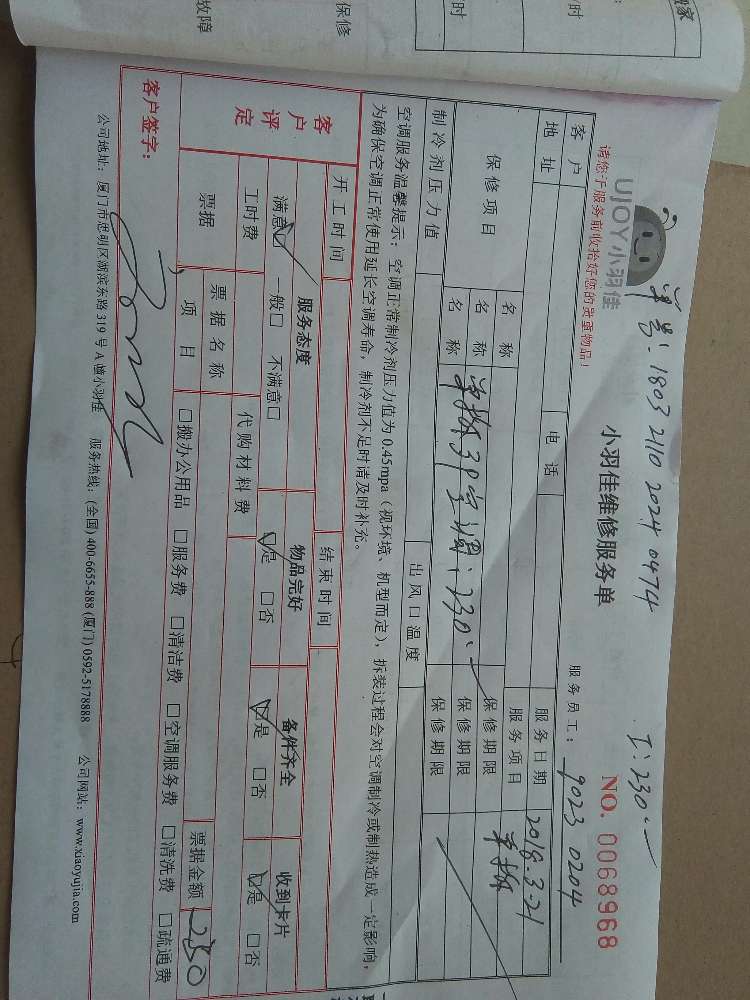 单号：1803 2110 2024 0474
工：230.—
UJOY小羽佳
请您于服务前收拾好您的贵重物品！
小羽佳维修服务单
NO. 0068968
服务员工：9023 0204
客户
电话
服务日期
2018.3.21
地址
服务项目
单拆
保修项目
名称
保修期限
名称
保修期限
名称
单拆3P空调：230.—
保修期限
制冷剂压力值
出风口温度
空调服务温馨提示：空调正常制冷剂压力值为0.45mpa（视环境、机型而定），拆装过程会对空调制冷或制热造成一定影响，
为确保空调正常使用延长空调寿命，制冷剂不足时请及时补充。
客户评定
开工时间
结束时间
服务态度
物品完好
备件齐全
收到卡片
满意☑ 一般□ 不满意□
☑是 □否
☑是 □否
☑是 □否
工时费
代购材料费
票据
票据名称
票据金额
230
项目
□搬办公用品 □服务费 □清洁费 □空调服务费 □清洗费 □疏通费
客户签字：
公司地址：厦门市思明区湖滨东路319号A幢小羽佳 服务热线：(全国) 400-6655-888 (厦门) 0592-5178888 公司网站：www.xiaoyujia.com
保修
故障
时
时